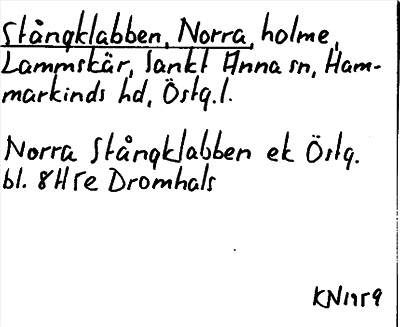 Stångklabben, Norra, holme,
Lammskär, Sankt Anna sn, Ham-
markinds hd, Östg.l.
Norra Stångklabben ek Östg.
bl. 8H5e Dromhals